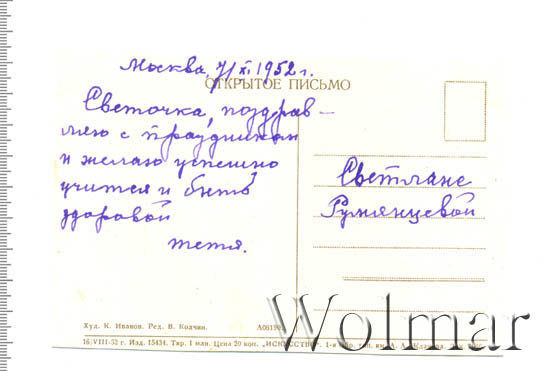 Москва, 7/XI 1952 г.
ОТКРЫТОЕ ПИСЬМО
Светочка, поздрав—
ляю с праздником
и желаю успешно
учится и быть
здоровой
тетя.
Светлане
Румянцевой
Худ. К. Иванов. Ред. В. Колчин.
16/VIII-52 г. Изд. 15434. Тир. 1 млн. Цена 20 коп. „ИСКУССТВО“. 1-я
Wolmar